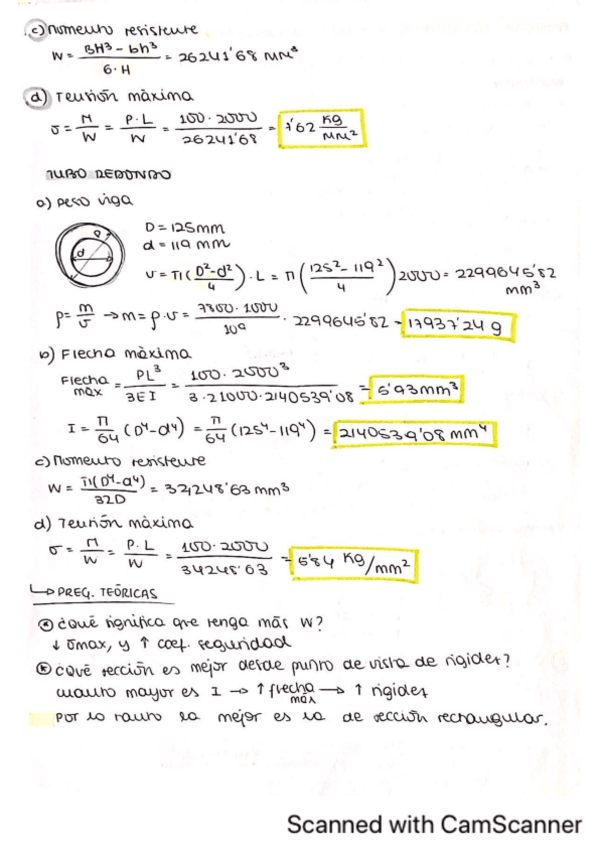 c) Momento resistente
W = BH³ - bh³ / 6·H = 26241'68 mm³
d) Tensión màxima
σ = M/W = P·L/W = 100·2000 / 26241'68 = 7'62 kg/mm²
TUBO REDONDO
a) Peso viga
D = 125mm
d = 119 mm
D
d
v = π(D²-d²/4)·L = π(125²-119²/4)2000 = 2299645'82 mm³
ρ = m/v → m = ρ·v = 7800·1000 / 10⁹ · 2299645'82 = 17937'24 g
b) Flecha màxima
Flecha max = PL³/3EI = 100·2000³ / 3·21000·2140539'08 = 5'93mm³
I = π/64 (D⁴-d⁴) = π/64 (125⁴-119⁴) = 2140539'08 mm⁴
c) Momento resistente
W = π(D⁴-d⁴)/32D = 34248'63 mm³
d) Tensión màxima
σ = M/W = P·L/W = 100·2000 / 34248'63 = 5'84 Kg/mm²
↳ PREG. TEÓRICAS
a) ¿Qué significa que tenga más W?
↓ σmax, y ↑ coef. seguridad
b) ¿Qué sección es mejor desde punto de vista de rigidez?
cuanto mayor es I → ↑ flecha max → ↑ rigidez
Por lo tanto la mejor es la de sección rectangular.
Scanned with CamScanner